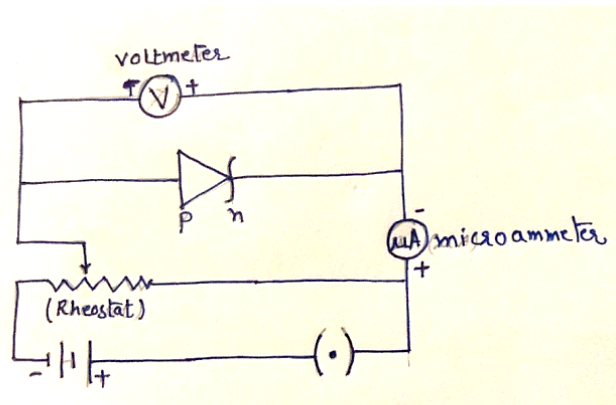 voltmeter
V +
p n
-
μA microammeter
+
(Rheostat)
- +